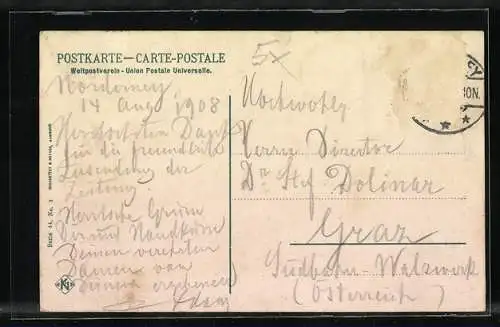 POSTKARTE—CARTE-POSTALE
Weltpostverein - Union Postale Universelle.
5x
Norderney
14 Aug 1908
Herzlichsten Dank
für die freundliche
Zusendung der
Zeitung.
Herzliche Grüsse
und Handküsse
Deinen verehrten
Damen von
Deinem ergebenen
Hochwohlg
Herrn Director
Dr Stef Dolinar
Graz
Südbahn-Walzwerk
(Österreich)